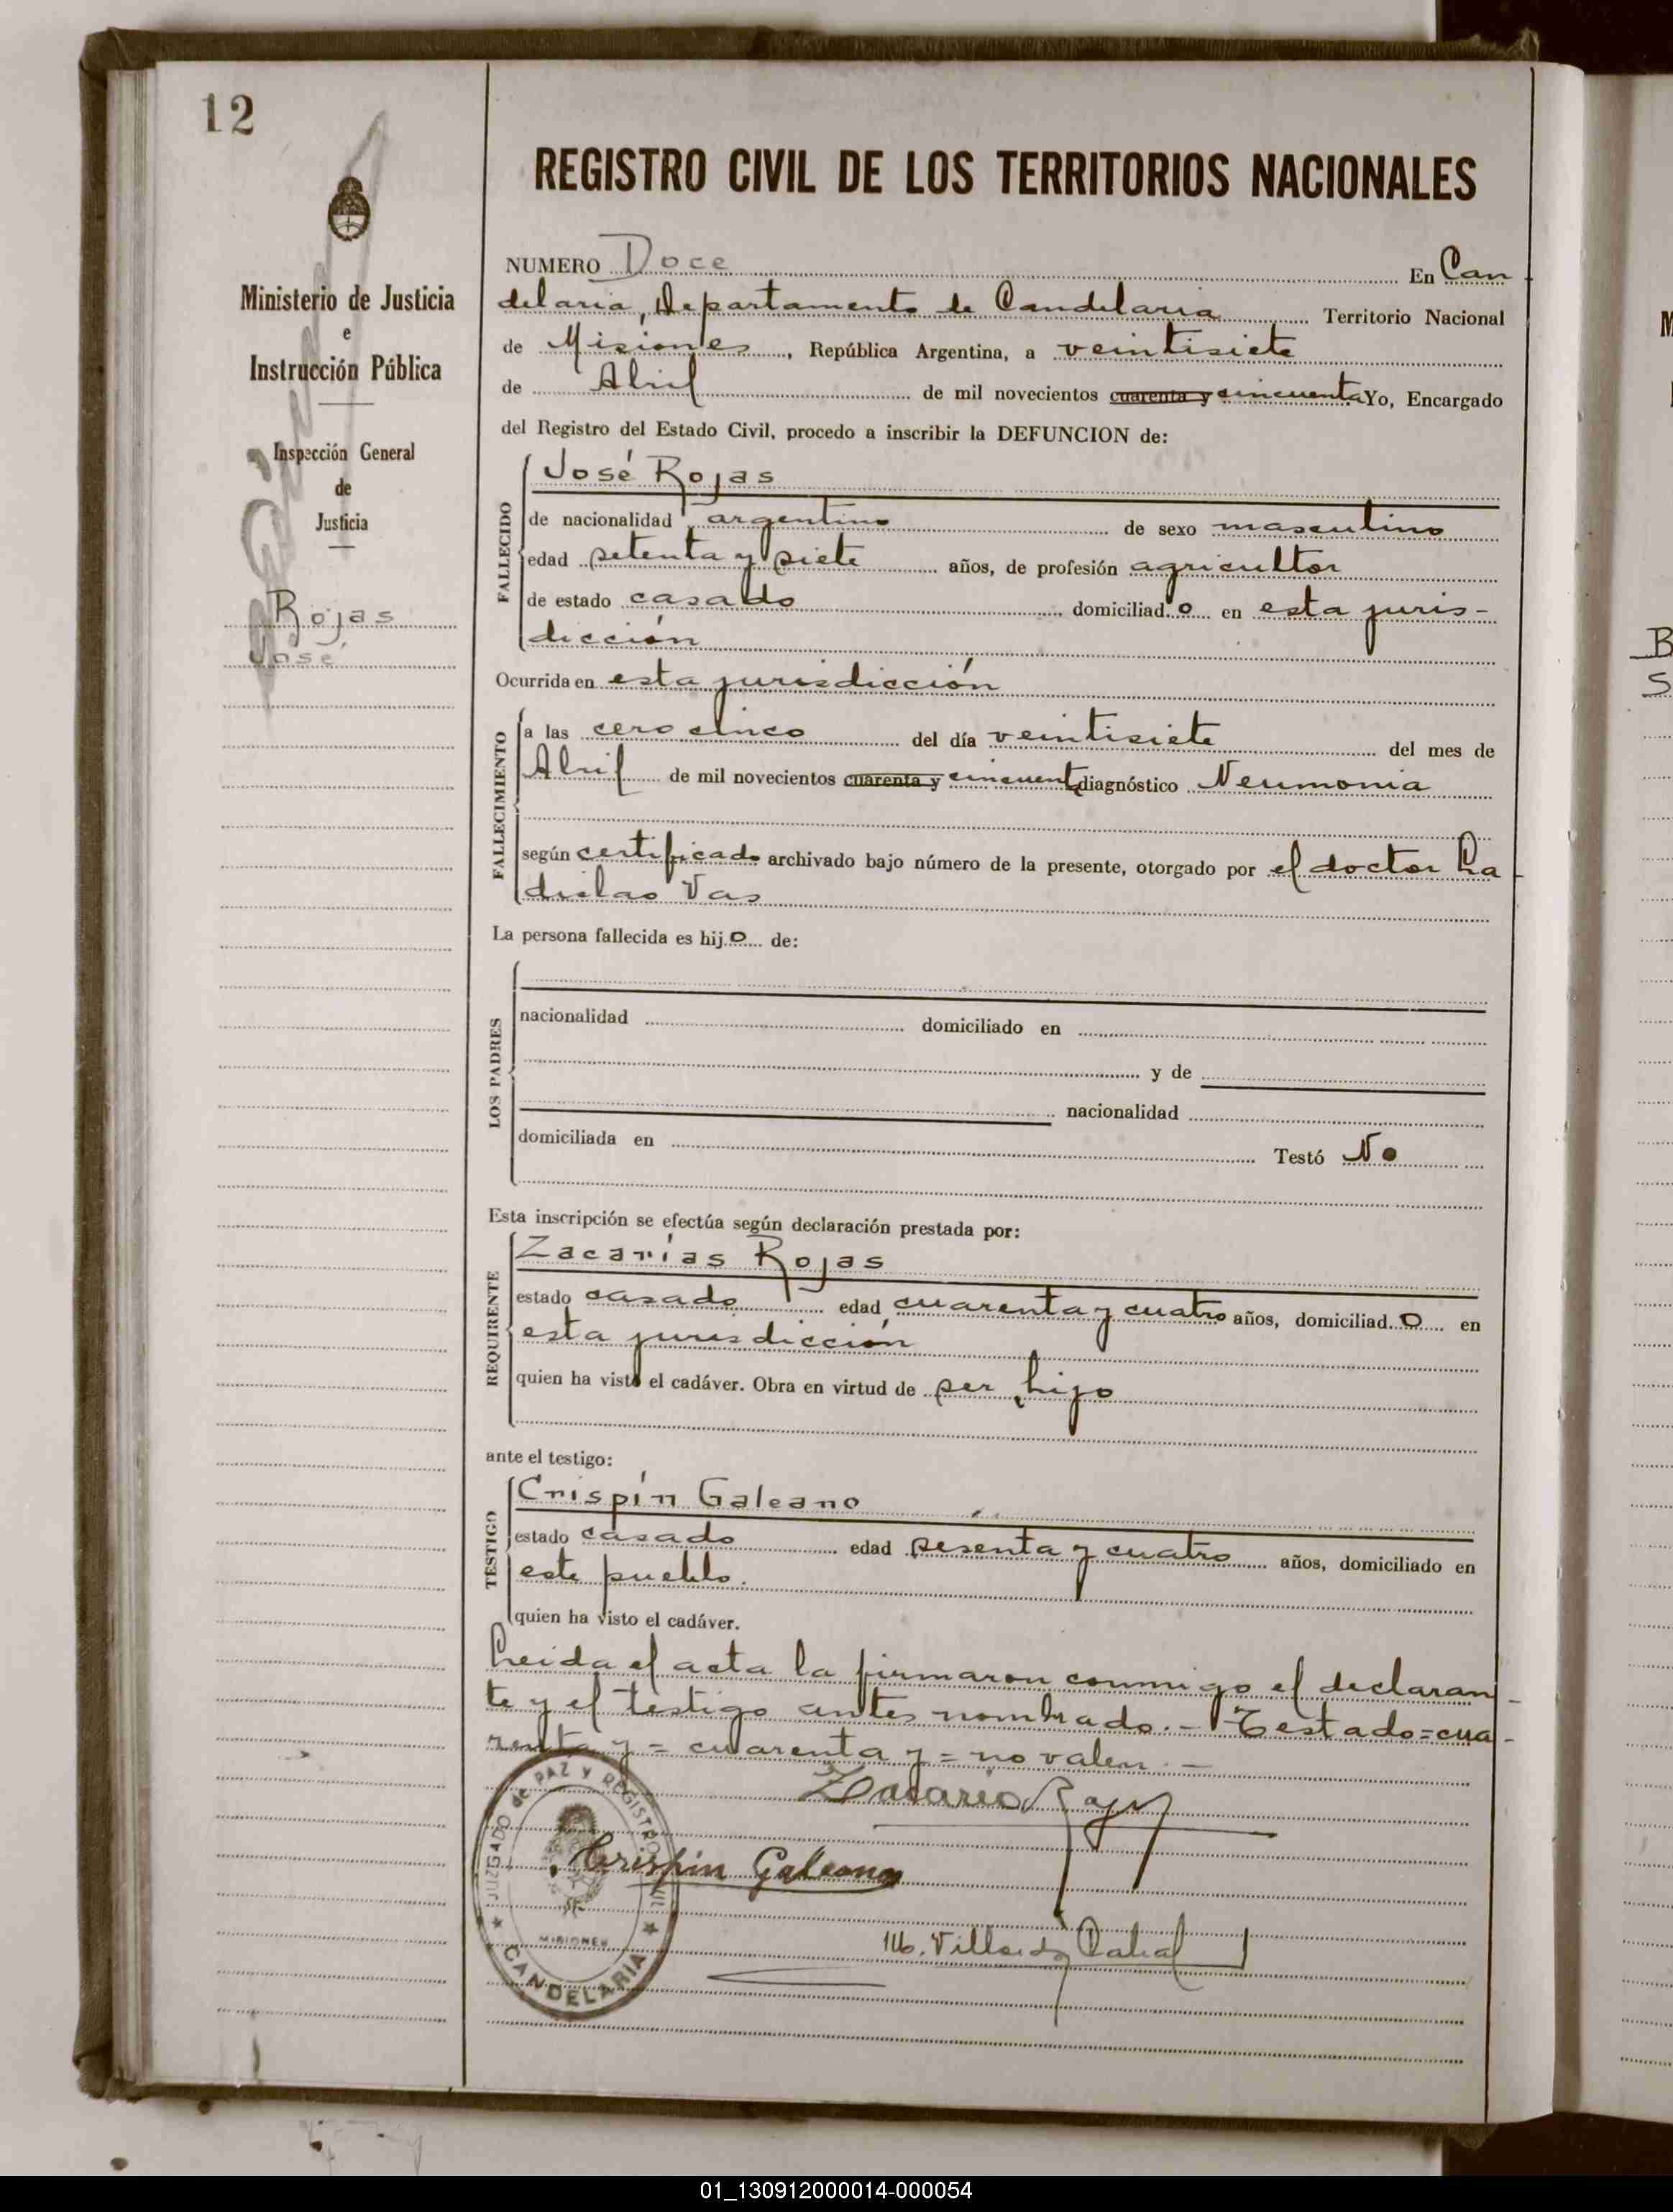 12
REGISTRO CIVIL DE LOS TERRITORIOS NACIONALES
Ministerio de Justicia
e
Instrucción Pública
Inspección General
de
Justicia
Rojas
José
NUMERO Doce En Can
delaria, Departamento de Candelaria Territorio Nacional
de Misiones, República Argentina, a veintisiete
de Abril de mil novecientos cuarenta y cincuenta Yo, Encargado
del Registro del Estado Civil, procedo a inscribir la DEFUNCION de:
FALLECIDO
José Rojas
de nacionalidad argentino de sexo masculino
edad setenta y siete años, de profesión agricultor
de estado casado domiciliad o en esta juris-
dicción
Ocurrida en esta jurisdicción
FALLECIMIENTO
a las cero cinco del día veintisiete del mes de
Abril de mil novecientos cuarenta y cincuenta diagnóstico Neumonia
según certificado archivado bajo número de la presente, otorgado por el doctor La
dislao Vas
La persona fallecida es hij o de:
LOS PADRES
nacionalidad domiciliado en
y de
nacionalidad
domiciliada en Testó No
Esta inscripción se efectúa según declaración prestada por:
REQUIRENTE
Zacarías Rojas
estado casado edad cuarenta y cuatro años, domiciliad o en
esta jurisdicción
quien ha visto el cadáver. Obra en virtud de ser hijo
ante el testigo:
TESTIGO
Crispín Galeano
estado casado edad sesenta y cuatro años, domiciliado en
este pueblo.
quien ha visto el cadáver.
Leida el acta la firmaron conmigo el declaran-
te y el testigo antes nombrado.- Testado=cua-
renta y = cuarenta y = no valen.-
Zacarías Rojas
Crispin Galeano
JUZGADO de PAZ Y REGISTRO CIVIL
MISIONES
CANDELARIA
M. Cabral
01_130912000014-000054